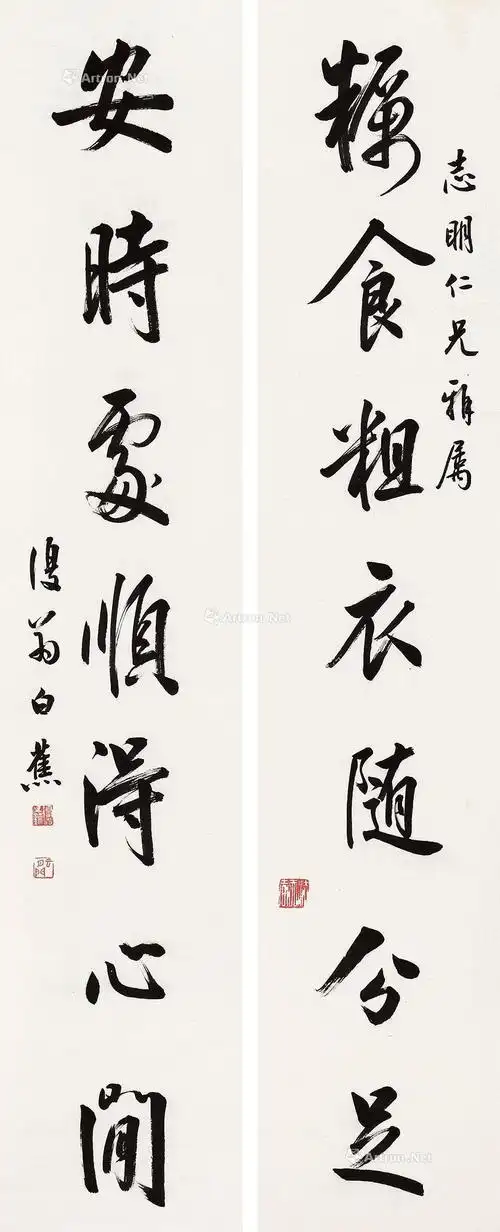 志明仁兄雅属
糲食粗衣随分足
安時處順得心閒
復翁白蕉
Artron.Net
Artron.Net
Artron.Net
Artron.Net